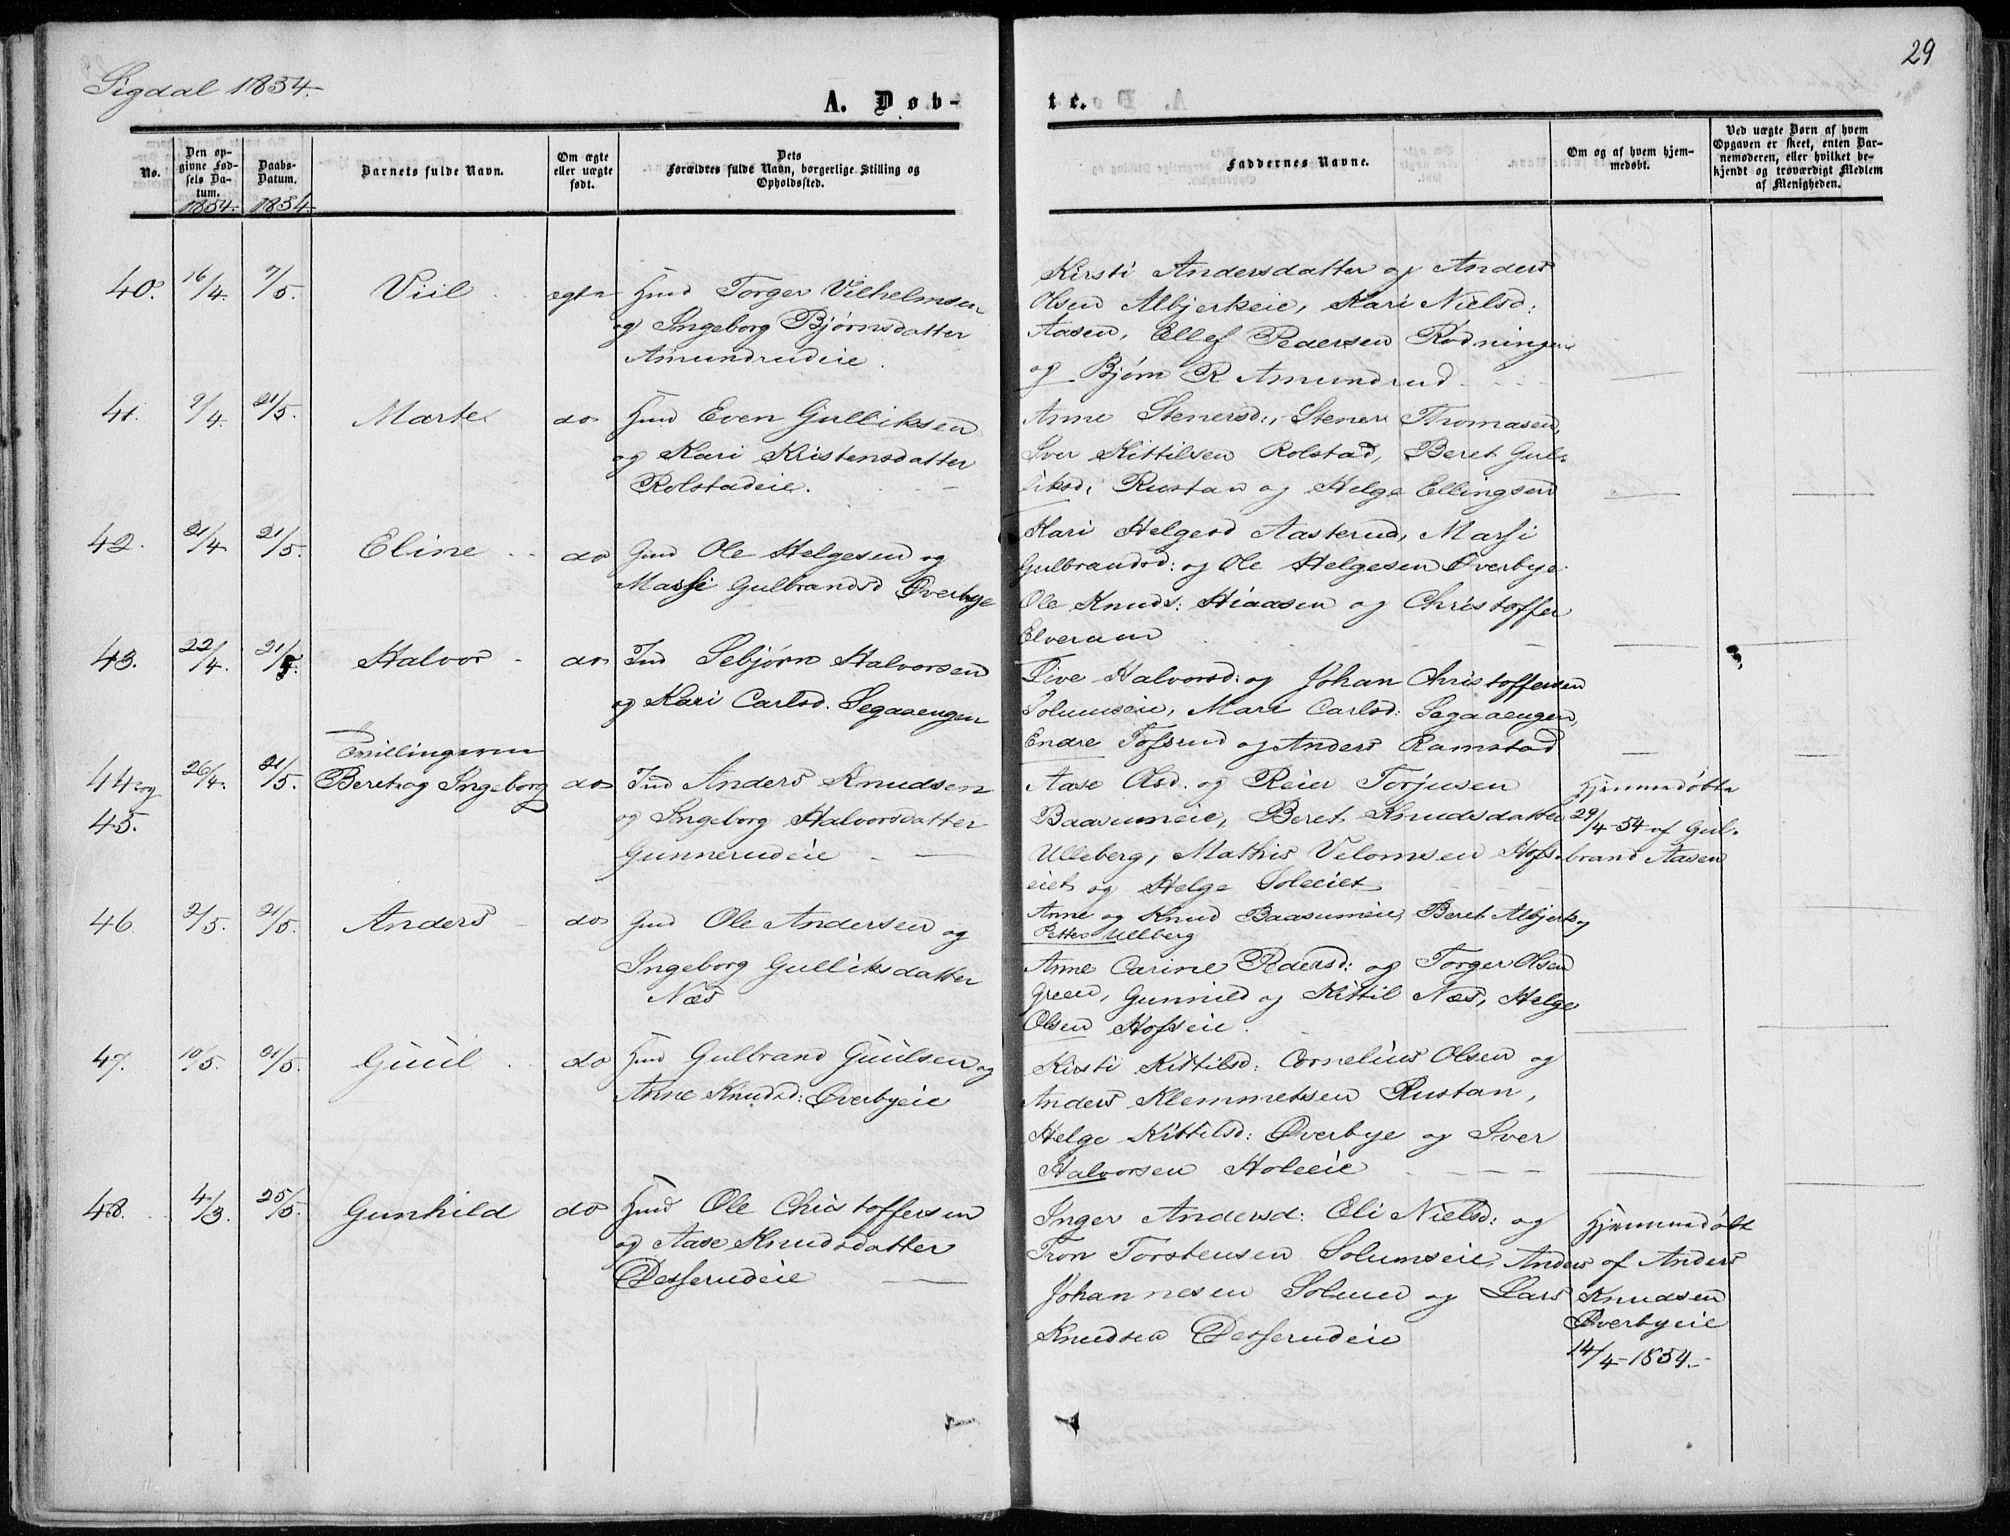 29
Sigdal 1854.
A. Døb-
te.
No.
Den op-
givne Fød-
sels Da-
tum.
1854.
Daabs-
Datum.
1854.
Barnets fulde Navn.
Om ægte
eller uægte
født.
Dets
Forældres fulde Navn, borgerlige Stilling og
Opholdssted.
Faddernes Navne.
Om og af hvem hjem-
medøbt.
Ved uægte Børn af hvem
Opgaven er skeet, enten Bar-
nemoderen, eller hvilket be-
kjendt og troværdigt Medlem
af Menigheden.
40. 16/4. 7/5. Viil ægte Hmd Torger Vilhelmsen
og Ingeborg Bjørnsdatter
Amundrudeie.
Kirsti Andersdatter og Anders
Olsen Albjerkeie, Kari Nielsd:
Aasen, Ellef Pedersen Rødningen
og Bjørn R Amundrud
41. 9/4. 21/5. Marte do Hmd Even Gulliksen
og Kari Kristensdatter
Rolstadeie.
Anne Stenersd:, Stener Thomasen,
Iver Kittilsen Rolstad, Beret Gul-
liksd: Rustan og Helge Ellingsen
42. 21/4. 21/5. Eline do Gmd Ole Helgesen og
Massi Gulbrandsd Øverbye
Kari Helgesd Aasterud, Massi
Gulbrandsd: og Ole Helgesen Øverbye
Ole Knuds: Hiaasen og Christoffer
Elveraen
43. 22/4. 21/5. Halvor do Ind Sebjørn Halvorsen
og Kari Carlsd. Segaaengen
Live Halvorsd: og Johan Christoffersen
Solumseie, Mari Carlsd: Segaaengen,
Endre Fossrud og Anders Ramstad
Tvillingerne
44 og 26/4. 21/5. Beret og Ingeborg do Ind Anders Knudsen
45.
og Ingeborg Halvorsdatter
Gunnerudeie
Aase Olsd. og Reier Torjusen
Baasumeie, Beret Knudsdatter
Ulleberg, Mathis Velomsen Hofs-
eiet og Helge Soleiet
Hjemmedøbte
29/4-54 af Gul-
brand Aasen
46. 2/5. 21/5. Anders do Gmd Ole Andersen og
Ingeborg Gulliksdatter
Næs
Anne og Knud Baasumeie, Beret Albjerk og
Petter Ullberg
Anne Carine Pedersd: og Torger Olsen
Green, Gunnild og Kittil Næs, Helge
Olsen Hofseie.
47. 10/5. 21/5. Guul do Hmd Gulbrand Guulsen og
Anne Knudsd: Øverbyeie
Kirsti Kittilsd: Cornelius Olsen og
Anders Klemmetsen Rustan,
Helge Kittilsd: Øverbye og Iver
Halvorsen Holeeie
48. 4/3. 25/5. Gunhild do Hmd Ole Christoffersen
og Aase Knudsdatter
Desserudeie
Inger Andersd: Eli Nielsd: og
Tron Torstensen Solumseie, Anders
Johannesen Solum og Lars
Knudsen Desserudeie
Hjemmedøbt
af Anders
Knudsen
Øverbyeie
14/4-1854.